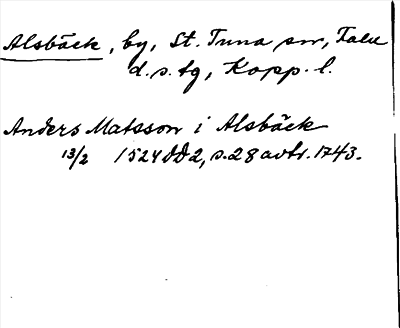 Alsbäck, by, St. Tuna sn, Falu
d.s. tg, Kopp. l.
Anders Matsson i Alsbäck
13/2 1524 DD2, s. 28 avtr. 1743.